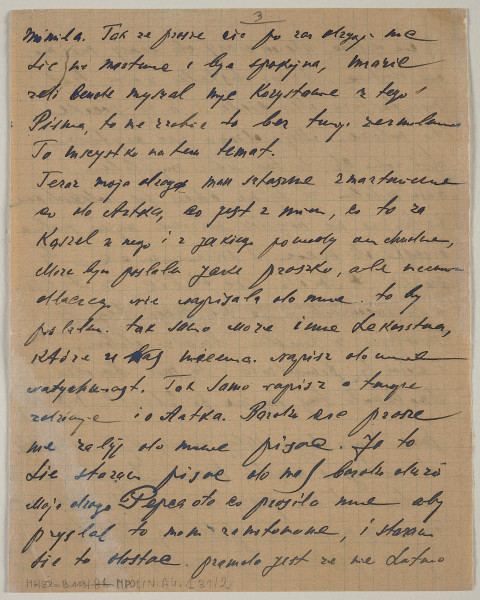 3
mówiła. Tak że proszę cię po raz drugi nie
się nie martwić i być spokojną,
jeżeli będę myślał mieć korzystanie z tego
Pisma, to nie zrobię to bez twego zezwolenia
To wszystko na ten temat.
Teraz moja droga mam straszne zmartwienie
co do Artka, co jest z nim, co to za
Kaszel u niego i z jakiego powodu on chudnie,
Może bym posłała jakie proszki, ale
dlaczego nie napisała do mnie to by
posłałam. tak samo może inne Lekarstwa,
które u Was niema. napisz do mnie
natychmiast. Tak samo napisz o twoje
zdrowie i o Artka. Bardzo cię proszę
nie żałuj do mnie pisać. Ja to
się staram pisać do was bardzo dużo
Moja droga Pepca oto co prosiła mnie aby
przysłał to mam zanotowane, i staram
się to dostać. prawda jest że nie Łatwo